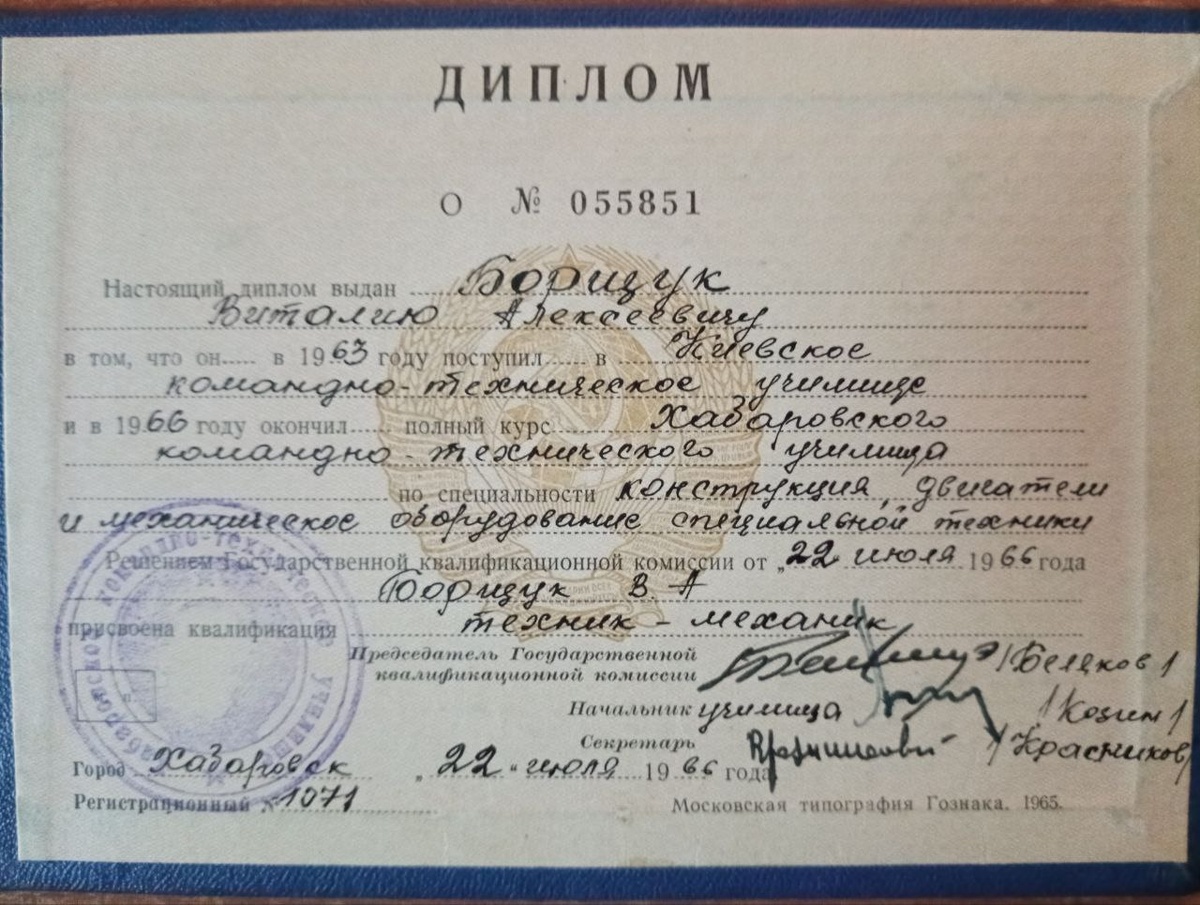 ДИПЛОМ
О № 055851
Настоящий диплом выдан Борищук
Виталию Алексеевичу
в том, что он в 1963 году поступил в Киевское
командно-техническое училище
и в 1966 году окончил полный курс Хабаровского
командно-технического училища
по специальности конструкция, двигатели
и механическое оборудование специальной техники
Решением Государственной квалификационной комиссии от „22 июля 1966 года
Борищук В. А
присвоена квалификация техник-механик
Председатель Государственной
квалификационной комиссии /Беляков/
Начальник училища /Козин/
Секретарь /Красников/
Город Хабаровск „22" июля 1966 года
Регистрационный № 1071
Московская типография Гознака. 1965.